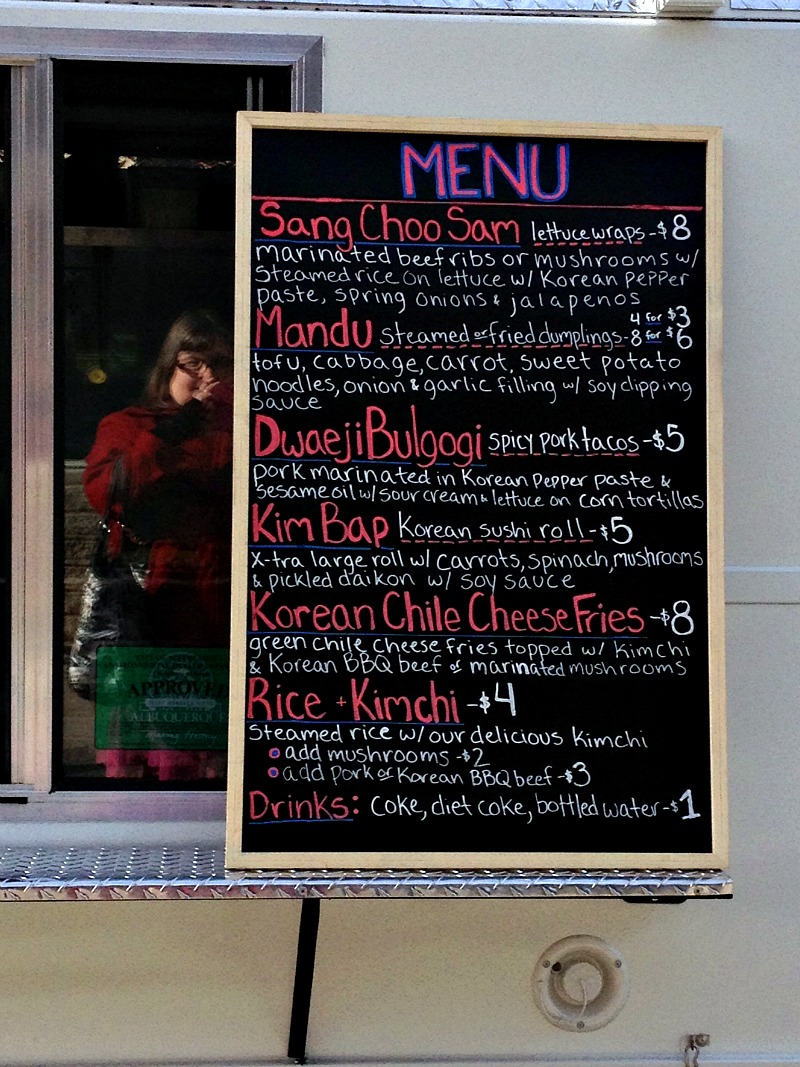 MENU
Sang Choo Sam lettuce wraps - $8
marinated beef ribs or mushrooms w/
Steamed rice on lettuce w/ Korean pepper
paste, spring onions & jalapenos
Mandu steamed or fried dumplings - 4 for $3
8 for $6
tofu, cabbage, carrot, sweet potato
noodles, onion & garlic filling w/ soy dipping
sauce
Dwaeji Bulgogi spicy pork tacos - $5
pork marinated in Korean Pepper paste &
sesame oil w/ sour cream & lettuce on corn tortillas
Kim Bap Korean sushi roll - $5
x-tra large roll w/ carrots, spinach, mushrooms
& pickled daikon w/ soy sauce
Korean Chile Cheese Fries - $8
green chile cheese fries topped w/ kimchi
& Korean BBQ beef or marinated mushrooms
Rice + Kimchi - $4
Steamed rice w/ our delicious kimchi
• add mushrooms - $2
• add pork or Korean BBQ beef - $3
Drinks: coke, diet coke, bottled water - $1
APPROVED
ALBUQUERQUE